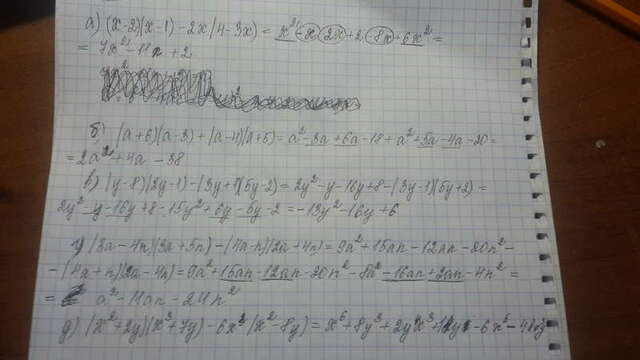 а) (x-2)(x-1)-2x(4-3x) = x²-x-2x+2-8x+6x² =
= 7x²-11x+2
б) (a+6)(a-3)+(a-4)(a+5) = a²-3a+6a-18+a²+5a-4a-20 =
= 2a²+4a-38
в) (y-8)(2y-1)-(3y+1)(5y-2) = 2y²-y-16y+8-(3y-1)(5y+2) =
2y²-y-16y+8-15y²+6y-5y-2 = -13y²-16y+6
г) (3a-4n)(3a+5n)-(4a-n)(2a+4n) = 9a²+15an-12an-20n²-
-(4a+n)(2a-4n) = 9a²+15an-12an-20n²-8a²-16an+2an-4n² =
= a²-11an-24n²
д) (x²+2y)(x³+7y)-6x³(x²-8y) = x⁶+8y³+2y